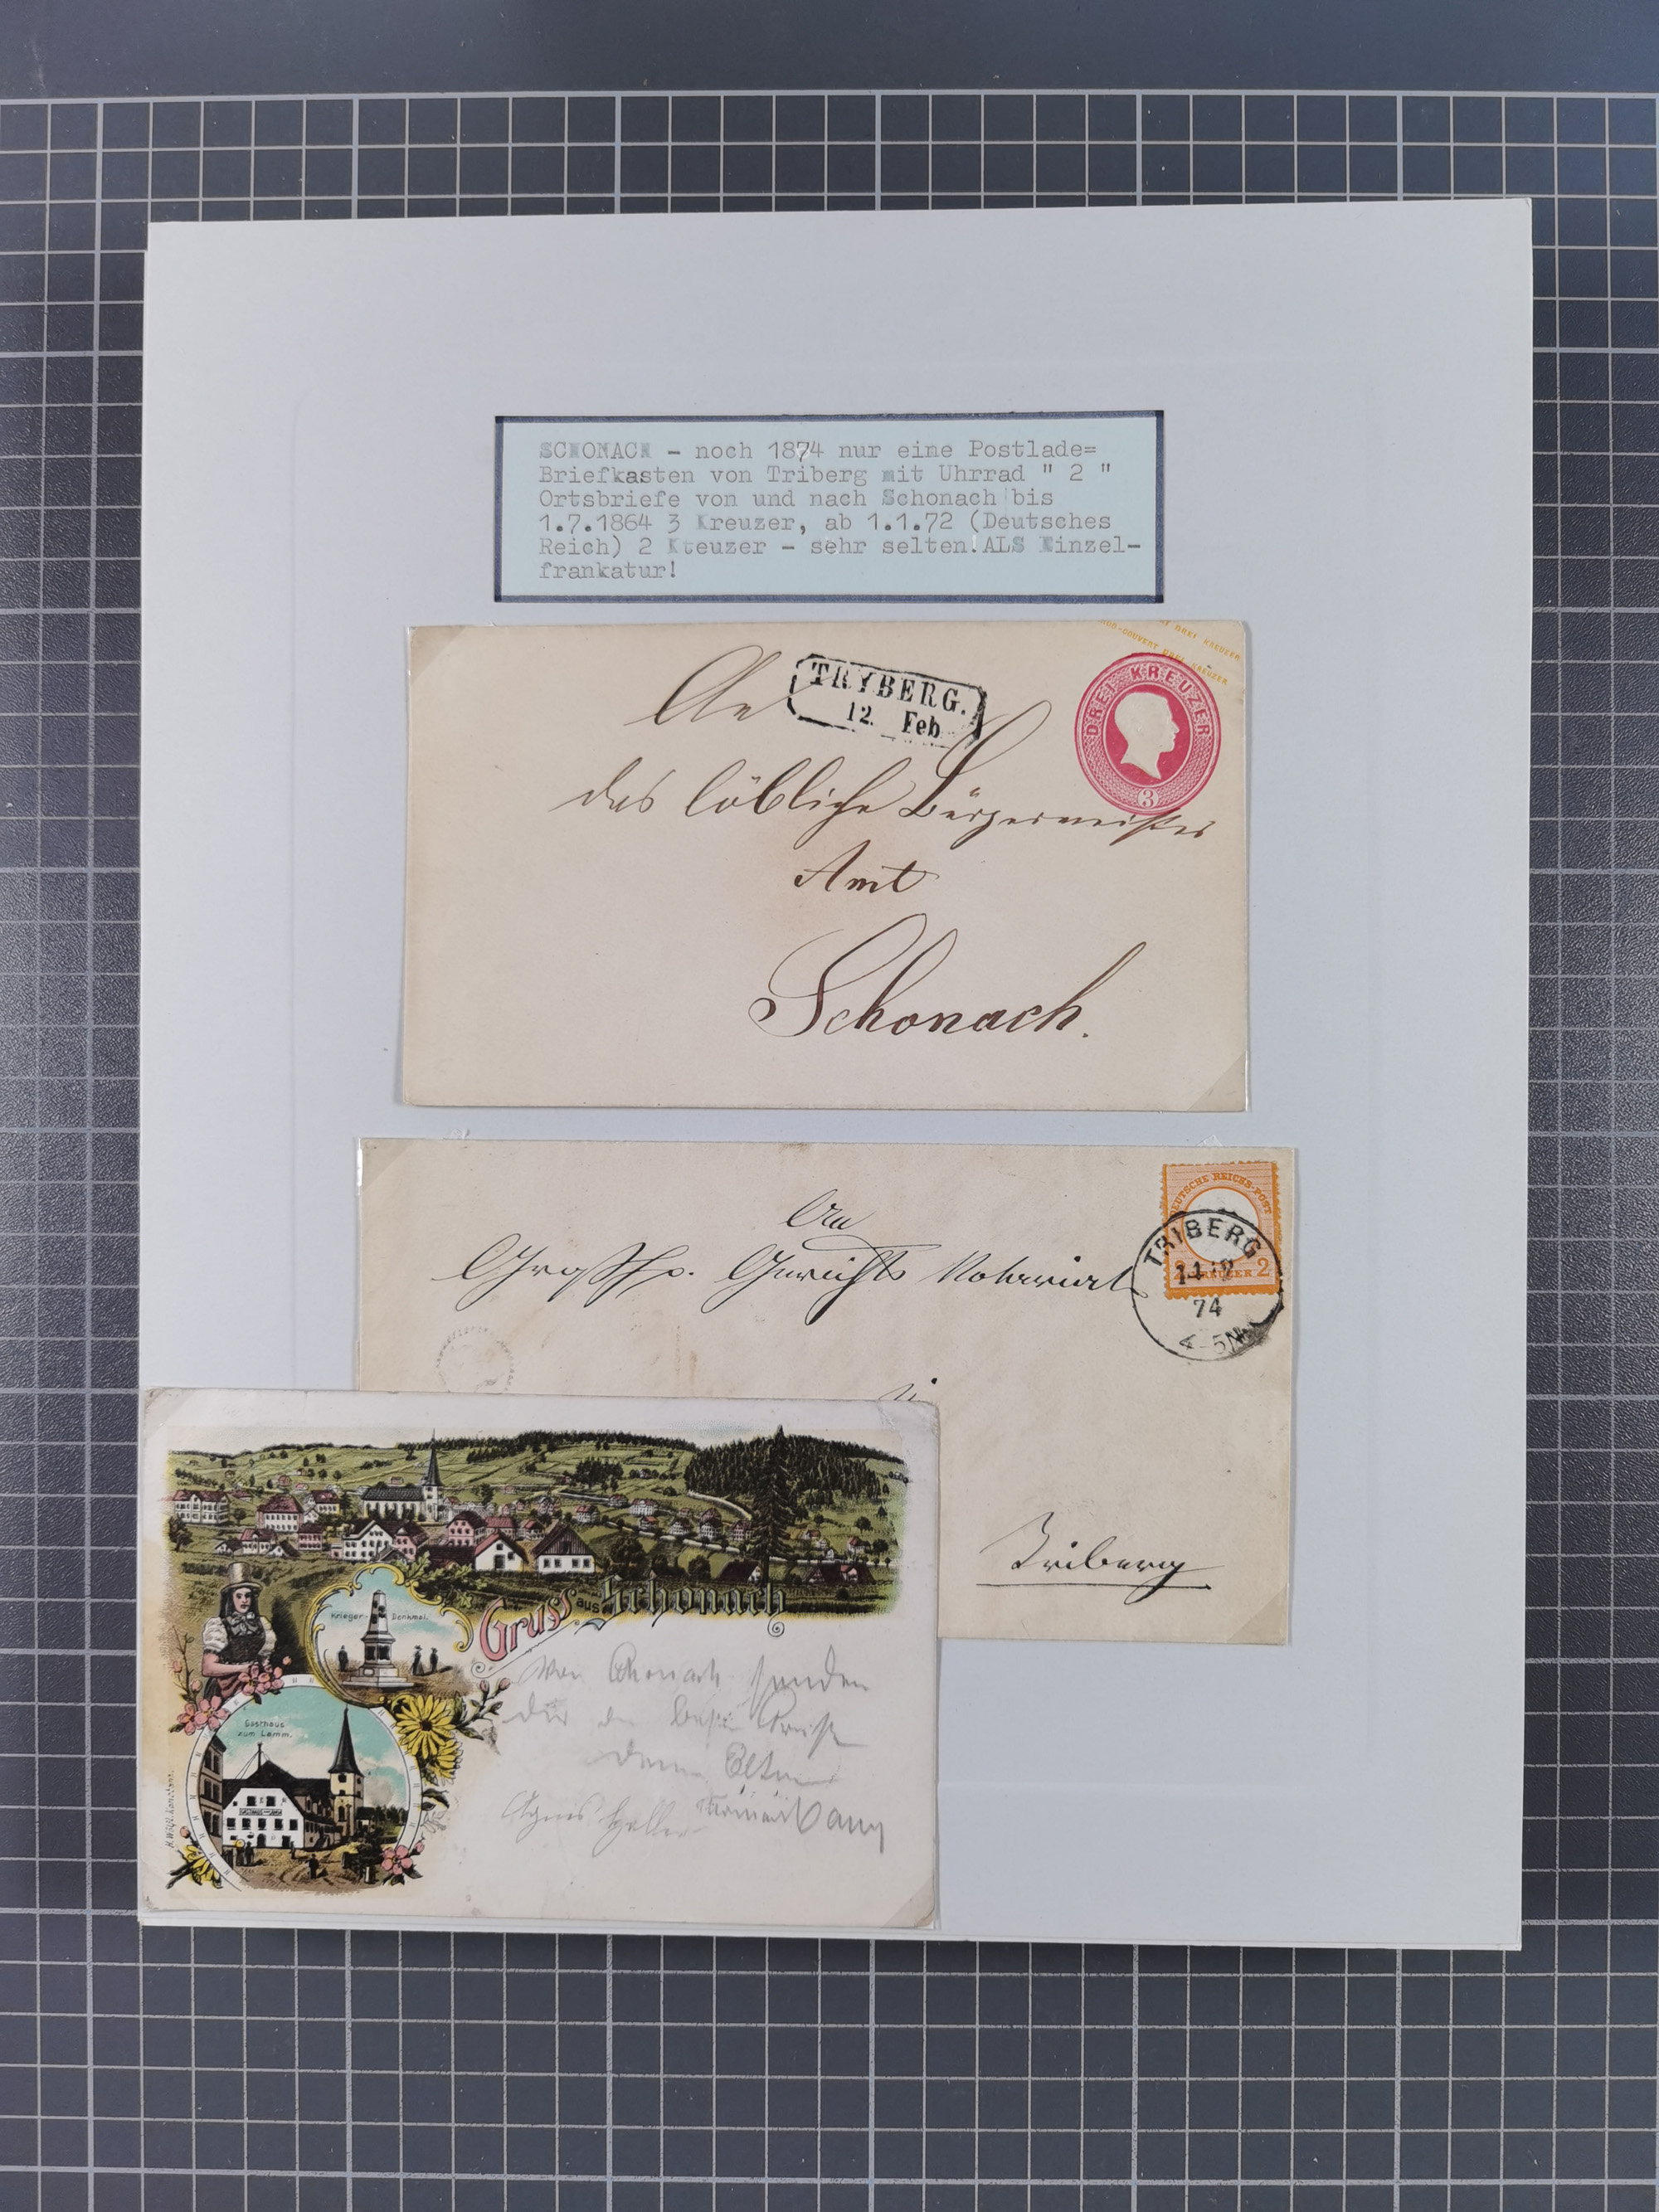 SCHONACH - noch 1874 nur eine Postlade=
Briefkasten von Triberg mit Uhrrad " 2 "
Ortsbriefe von und nach Schonach bis
1.7.1864 3 Kreuzer, ab 1.1.72 (Deutsches
Reich) 2 Kteuzer - sehr selten!ALS Einzel-
frankatur!
DREI KREUZER
3
TRYBERG.
12. Feb
An
das löbliche Bürgermeister
Amt
Schonach.
DEUTSCHE REICHS-POST
KREUZER 2
TRIBERG
74
4-5N
An
Großh. Gerichts Notariat
Triberg
Gruss aus Schonach
Krieger-Denkmal.
Gasthaus
zum Lamm.
Von Schonach senden
Dir die besten Grüße
deine Eltern
Agnes Haller